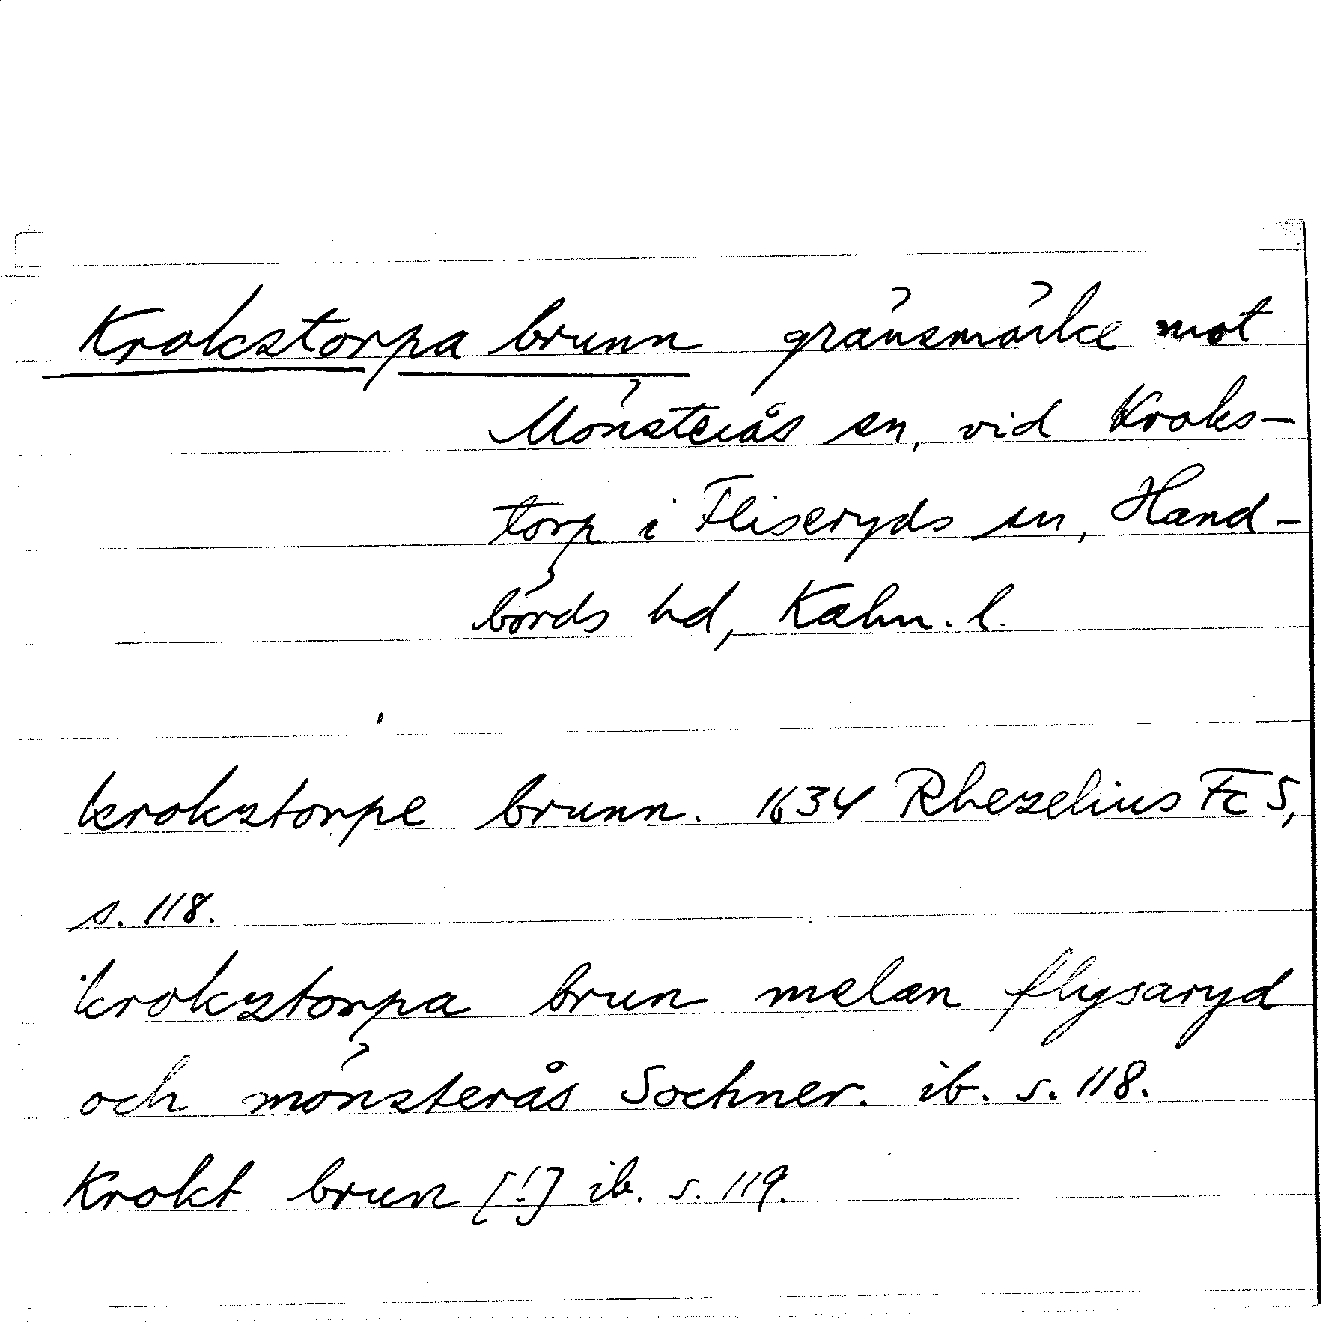 Krokstorpa brunn gränsmärke mot
Mönsterås sn, vid Kroks-
torp i Fliseryds sn, Hand-
börds hd, Kalm. l.
krokstorpe brunn. 1634 Rhezelius Fc 5,
s. 118.
krokstorpa brun melan flysaryd
och mönsterås Sochner. ib. s. 118.
Krokt brun [!] ib. s. 119.